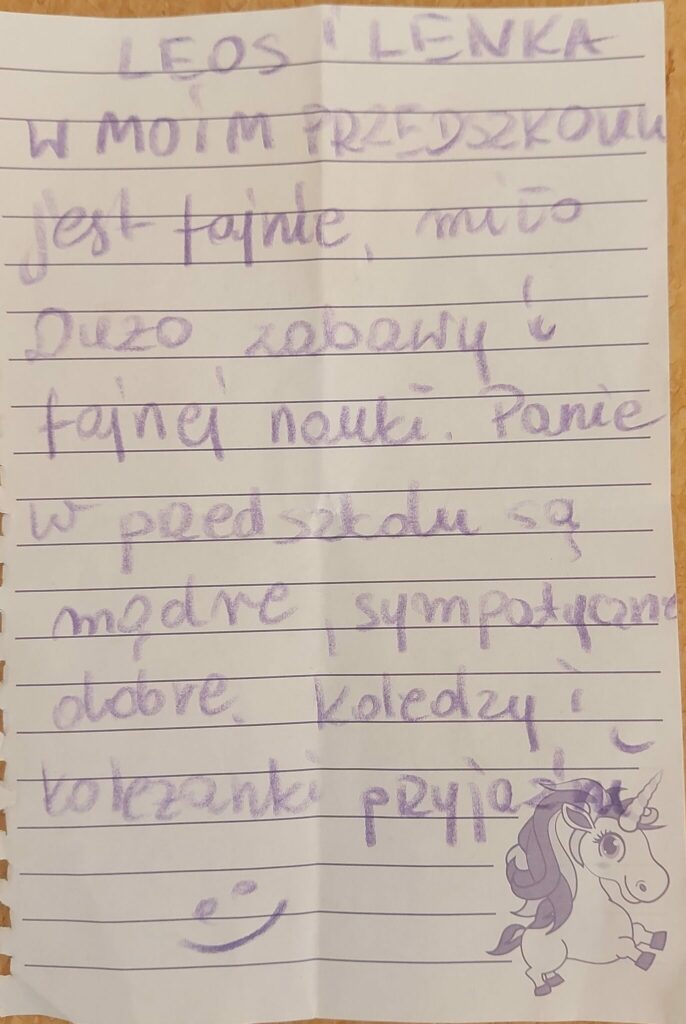 LEOS i LENKA
W MOIM PRZEDSZKOLU
jest fajnie, miło
Dużo zabawy i
fajnej nauki. Panie
w przedszkolu są
mądre, sympatyczne
dobre. Koledzy i
koleżanki przyjaźni